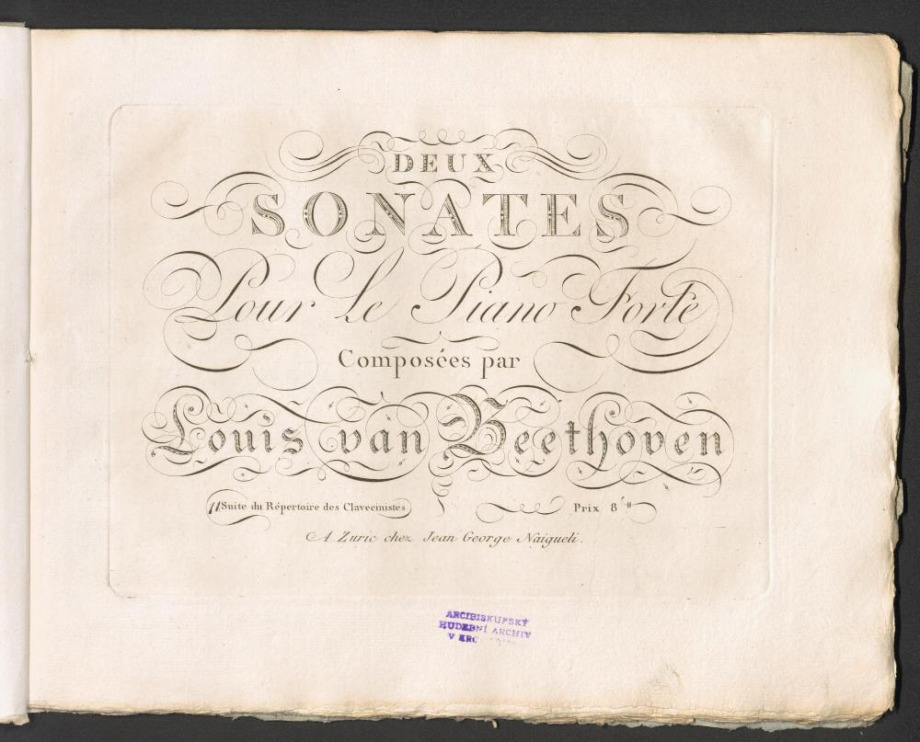 DEUX
SONATES
Pour Le Piano Forte
Composées par
Louis van Beethoven
11 Suite du Répertoire des Clavecinistes
Prix 8
A Zuric chez Jean George Naigueli.
ARCIBISKUPSKÝ
HUDEBNÍ ARCHIV
V